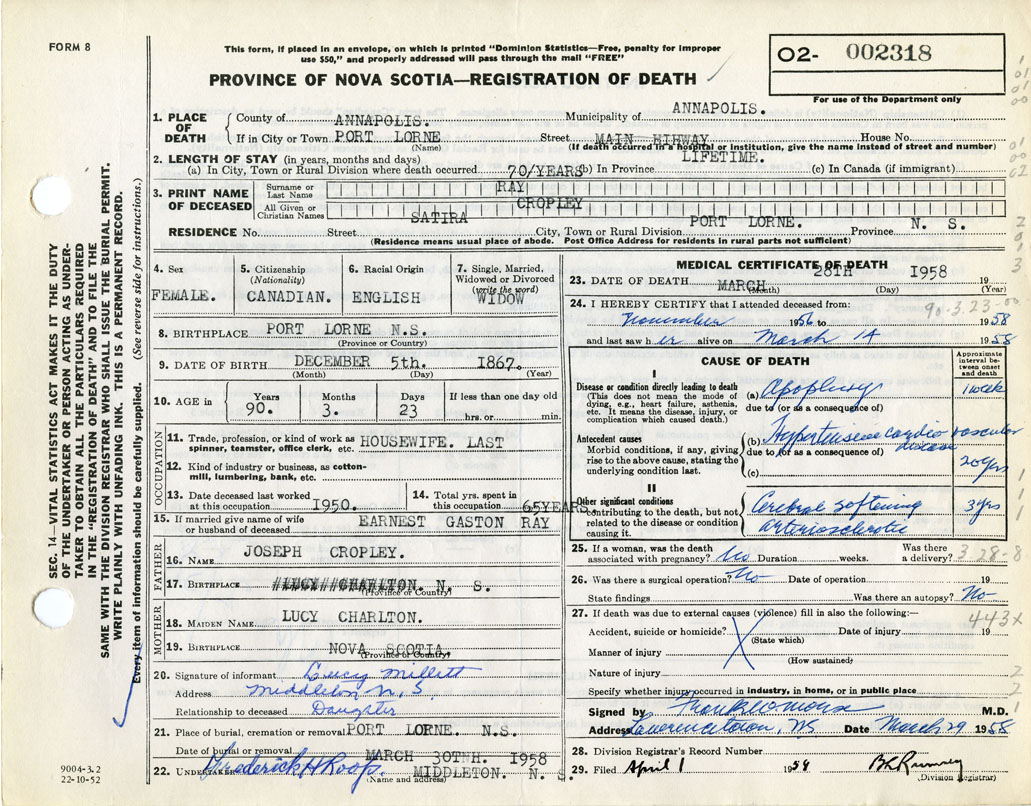 FORM 8
This form, if placed in an envelope, on which is printed "Dominion Statistics—Free, penalty for improper
use $50," and properly addressed will pass through the mail "FREE"
PROVINCE OF NOVA SCOTIA—REGISTRATION OF DEATH
02- 002318
For use of the Department only
1. PLACE OF DEATH
County of ANNAPOLIS. Municipality of ANNAPOLIS.
If in City or Town PORT LORNE Street MAIN HIHWAY House No.
(Name) (If death occurred in a hospital or institution, give the name instead of street and number)
2. LENGTH OF STAY (in years, months and days) LIFETIME.
(a) In City, Town or Rural Division where death occurred 70/YEARS (b) In Province (c) In Canada (if immigrant)
3. PRINT NAME OF DECEASED
Surname or Last Name RAY
All Given or Christian Names SATIRA CROPLEY
RESIDENCE No. Street City, Town or Rural Division PORT LORNE. Province N. S.
(Residence means usual place of abode. Post Office Address for residents in rural parts not sufficient)
4. Sex FEMALE.
5. Citizenship (Nationality) CANADIAN.
6. Racial Origin ENGLISH
7. Single, Married, Widowed or Divorced (write the word) WIDOW
8. BIRTHPLACE PORT LORNE N.S.
(Province or Country)
9. DATE OF BIRTH DECEMBER 5th. 1867.
(Month) (Day) (Year)
10. AGE in Years 90. Months 3. Days 23 If less than one day old hrs. or min.
OCCUPATION
11. Trade, profession, or kind of work as spinner, teamster, office clerk, etc. HOUSEWIFE. LAST
12. Kind of industry or business, as cotton-mill, lumbering, bank, etc.
13. Date deceased last worked at this occupation 1950.
14. Total yrs. spent in this occupation 65YEARS.
15. If married give name of wife or husband of deceased EARNEST GASTON RAY
FATHER
16. NAME JOSEPH CROPLEY.
17. BIRTHPLACE LUCY CHARLTON. N. S.
(Province or Country)
MOTHER
18. MAIDEN NAME LUCY CHARLTON.
19. BIRTHPLACE NOVA SCOTIA.
(Province or Country)
20. Signature of informant Lucy Millett
Address Middleton N. S
Relationship to deceased Daughter
21. Place of burial, cremation or removal PORT LORNE. N.S.
Date of burial or removal MARCH 30TH. 1958
22. UNDERTAKER Frederick H Roop. MIDDLETON. N. S.
(Name and address)
MEDICAL CERTIFICATE OF DEATH
23. DATE OF DEATH MARCH 28TH 1958 19
(Month) (Day) (Year)
90.3.23-00
24. I HEREBY CERTIFY that I attended deceased from:
November 1956 to 1958
and last saw her alive on March 14 1958
CAUSE OF DEATH
Approximate interval between onset and death
I
Disease or condition directly leading to death
(This does not mean the mode of dying, e.g., heart failure, asthenia, etc. It means the disease, injury, or complication which caused death.)
(a) Apoplexy 1 week
due to (or as a consequence of)
Antecedent causes
Morbid conditions, if any, giving rise to the above cause, stating the underlying condition last.
(b) Hypertensive cardio vascular disease 20 yrs
due to (or as a consequence of)
(c)
II
Other significant conditions
contributing to the death, but not related to the disease or condition causing it.
Cerebral softening 3 yrs
arteriosclerotic
25. If a woman, was the death associated with pregnancy? No Duration weeks. Was there a delivery?
3.28-8
26. Was there a surgical operation? No Date of operation 19
State findings Was there an autopsy? No
27. If death was due to external causes (violence) fill in also the following:—
443X
Accident, suicide or homicide? Date of injury 19
(State which)
Manner of injury
(How sustained)
Nature of injury
Specify whether injury occurred in industry, in home, or in public place
Signed by M.D.
Address Lawrencetown, NS Date March 29 1958
28. Division Registrar's Record Number
29. Filed April 1 1958
(Division Registrar)
SEC. 14—VITAL STATISTICS ACT MAKES IT THE DUTY
OF THE UNDERTAKER OR PERSON ACTING AS UNDER-
TAKER TO OBTAIN ALL THE PARTICULARS REQUIRED
IN THE "REGISTRATION OF DEATH" AND TO FILE THE
SAME WITH THE DIVISION REGISTRAR WHO SHALL ISSUE THE BURIAL PERMIT.
WRITE PLAINLY WITH UNFADING INK. THIS IS A PERMANENT RECORD.
Every item of information should be carefully supplied. (See reverse side for instructions.)
9004-3.2
22-10-52